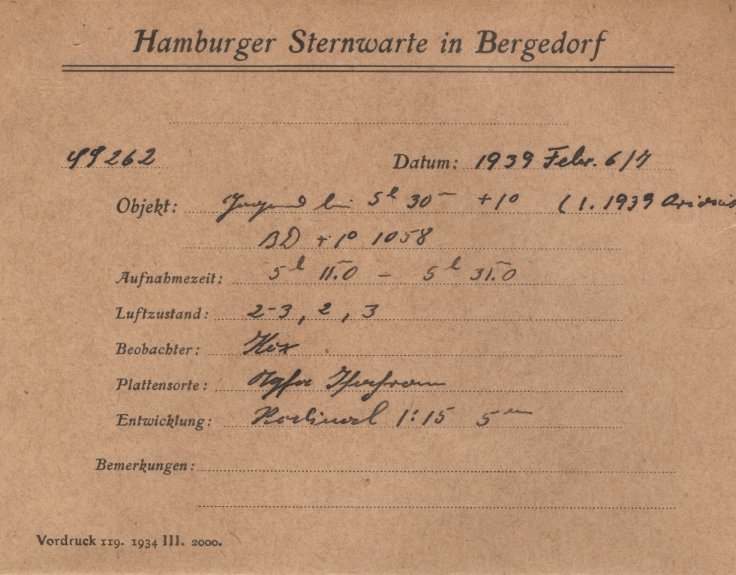 Hamburger Sternwarte in Bergedorf
49262 Datum: 1939 Febr. 6/7
Objekt: Gegend bei 5h 30m +1° (1. 1939
BD +1° 1058
Aufnahmezeit: 5h 11.0 – 5h 31.0
Luftzustand: 2-3, 2, 3
Beobachter:
Plattensorte: Agfa Isochrom
Entwicklung: Rodinal 1:15 5m
Bemerkungen:
Vordruck 119. 1934 III. 2000.